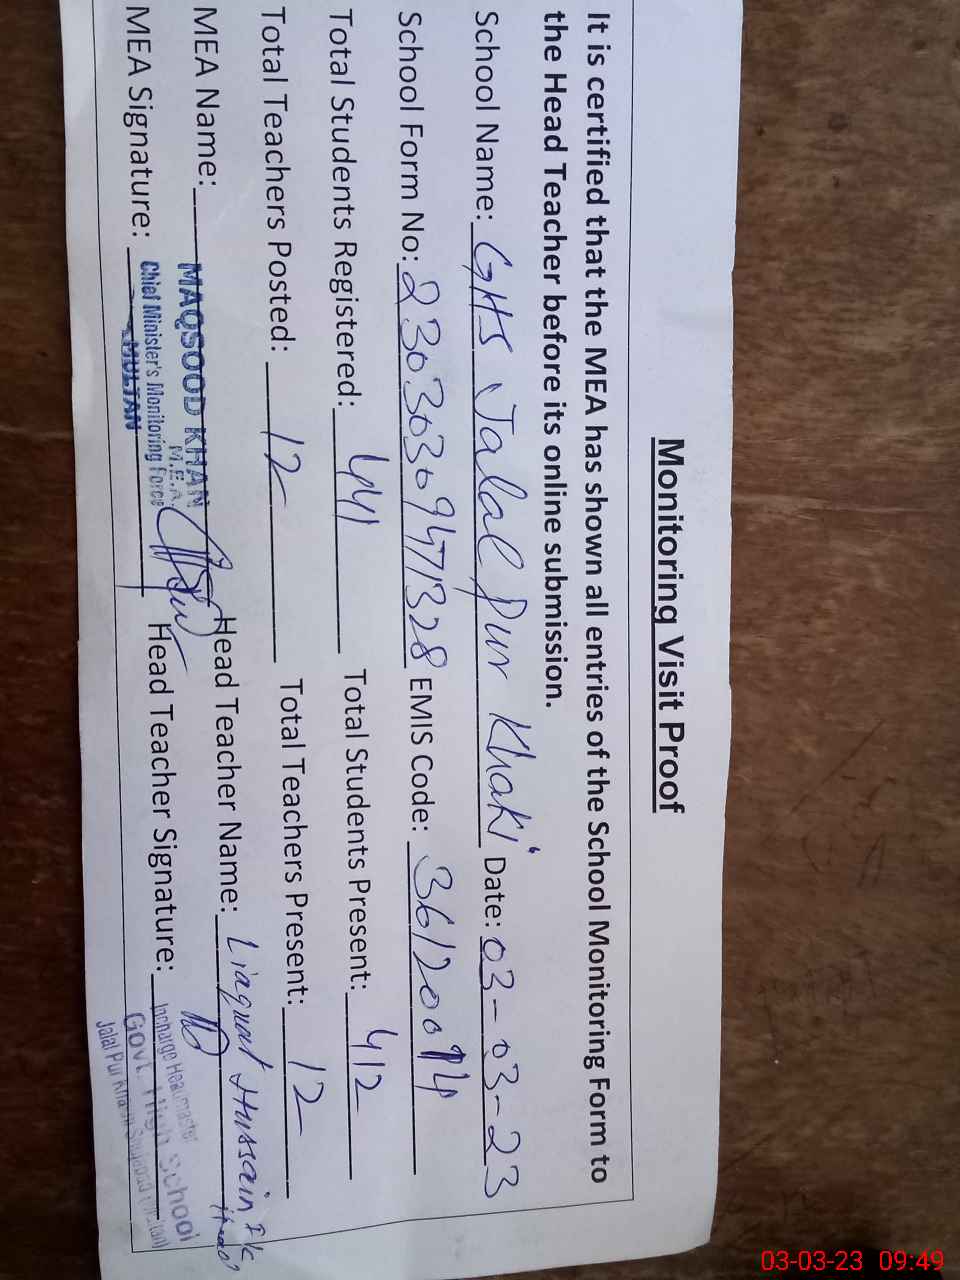 Monitoring Visit Proof
It is certified that the MEA has shown all entries of the School Monitoring Form to
the Head Teacher before its online submission.
School Name: GHS Jalal Pur Khaki Date: 03-03-23
School Form No: 23030309471328 EMIS Code: 36120014
Total Students Registered: 441 Total Students Present: 412
Total Teachers Posted: 12 Total Teachers Present: 12
MEA Name: MAQSOOD KHAN Head Teacher Name: Liaquat Hussain I/c
M.E.A
MEA Signature: Chief Minister's Monitoring Force Head Teacher Signature: Incharge Headmaster
MULTAN Govt. High School
Jalal Pur
03-03-23 09:49